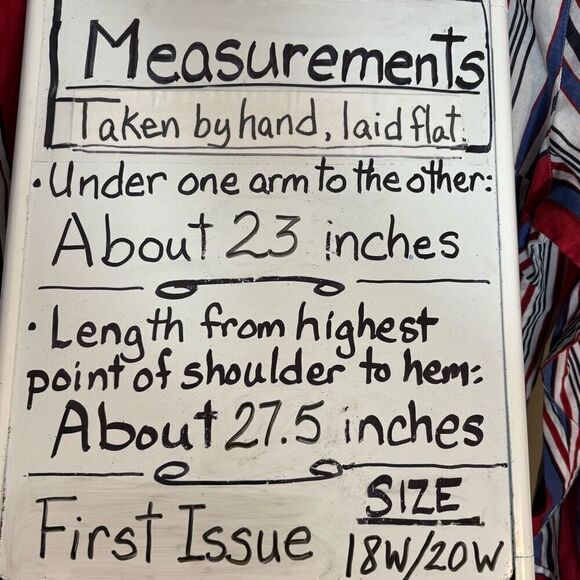 Measurements
Taken by hand, laid flat.
• Under one arm to the other:
About 23 inches
• Length from highest
point of shoulder to hem:
About 27.5 inches
First Issue
SIZE
18W/20W